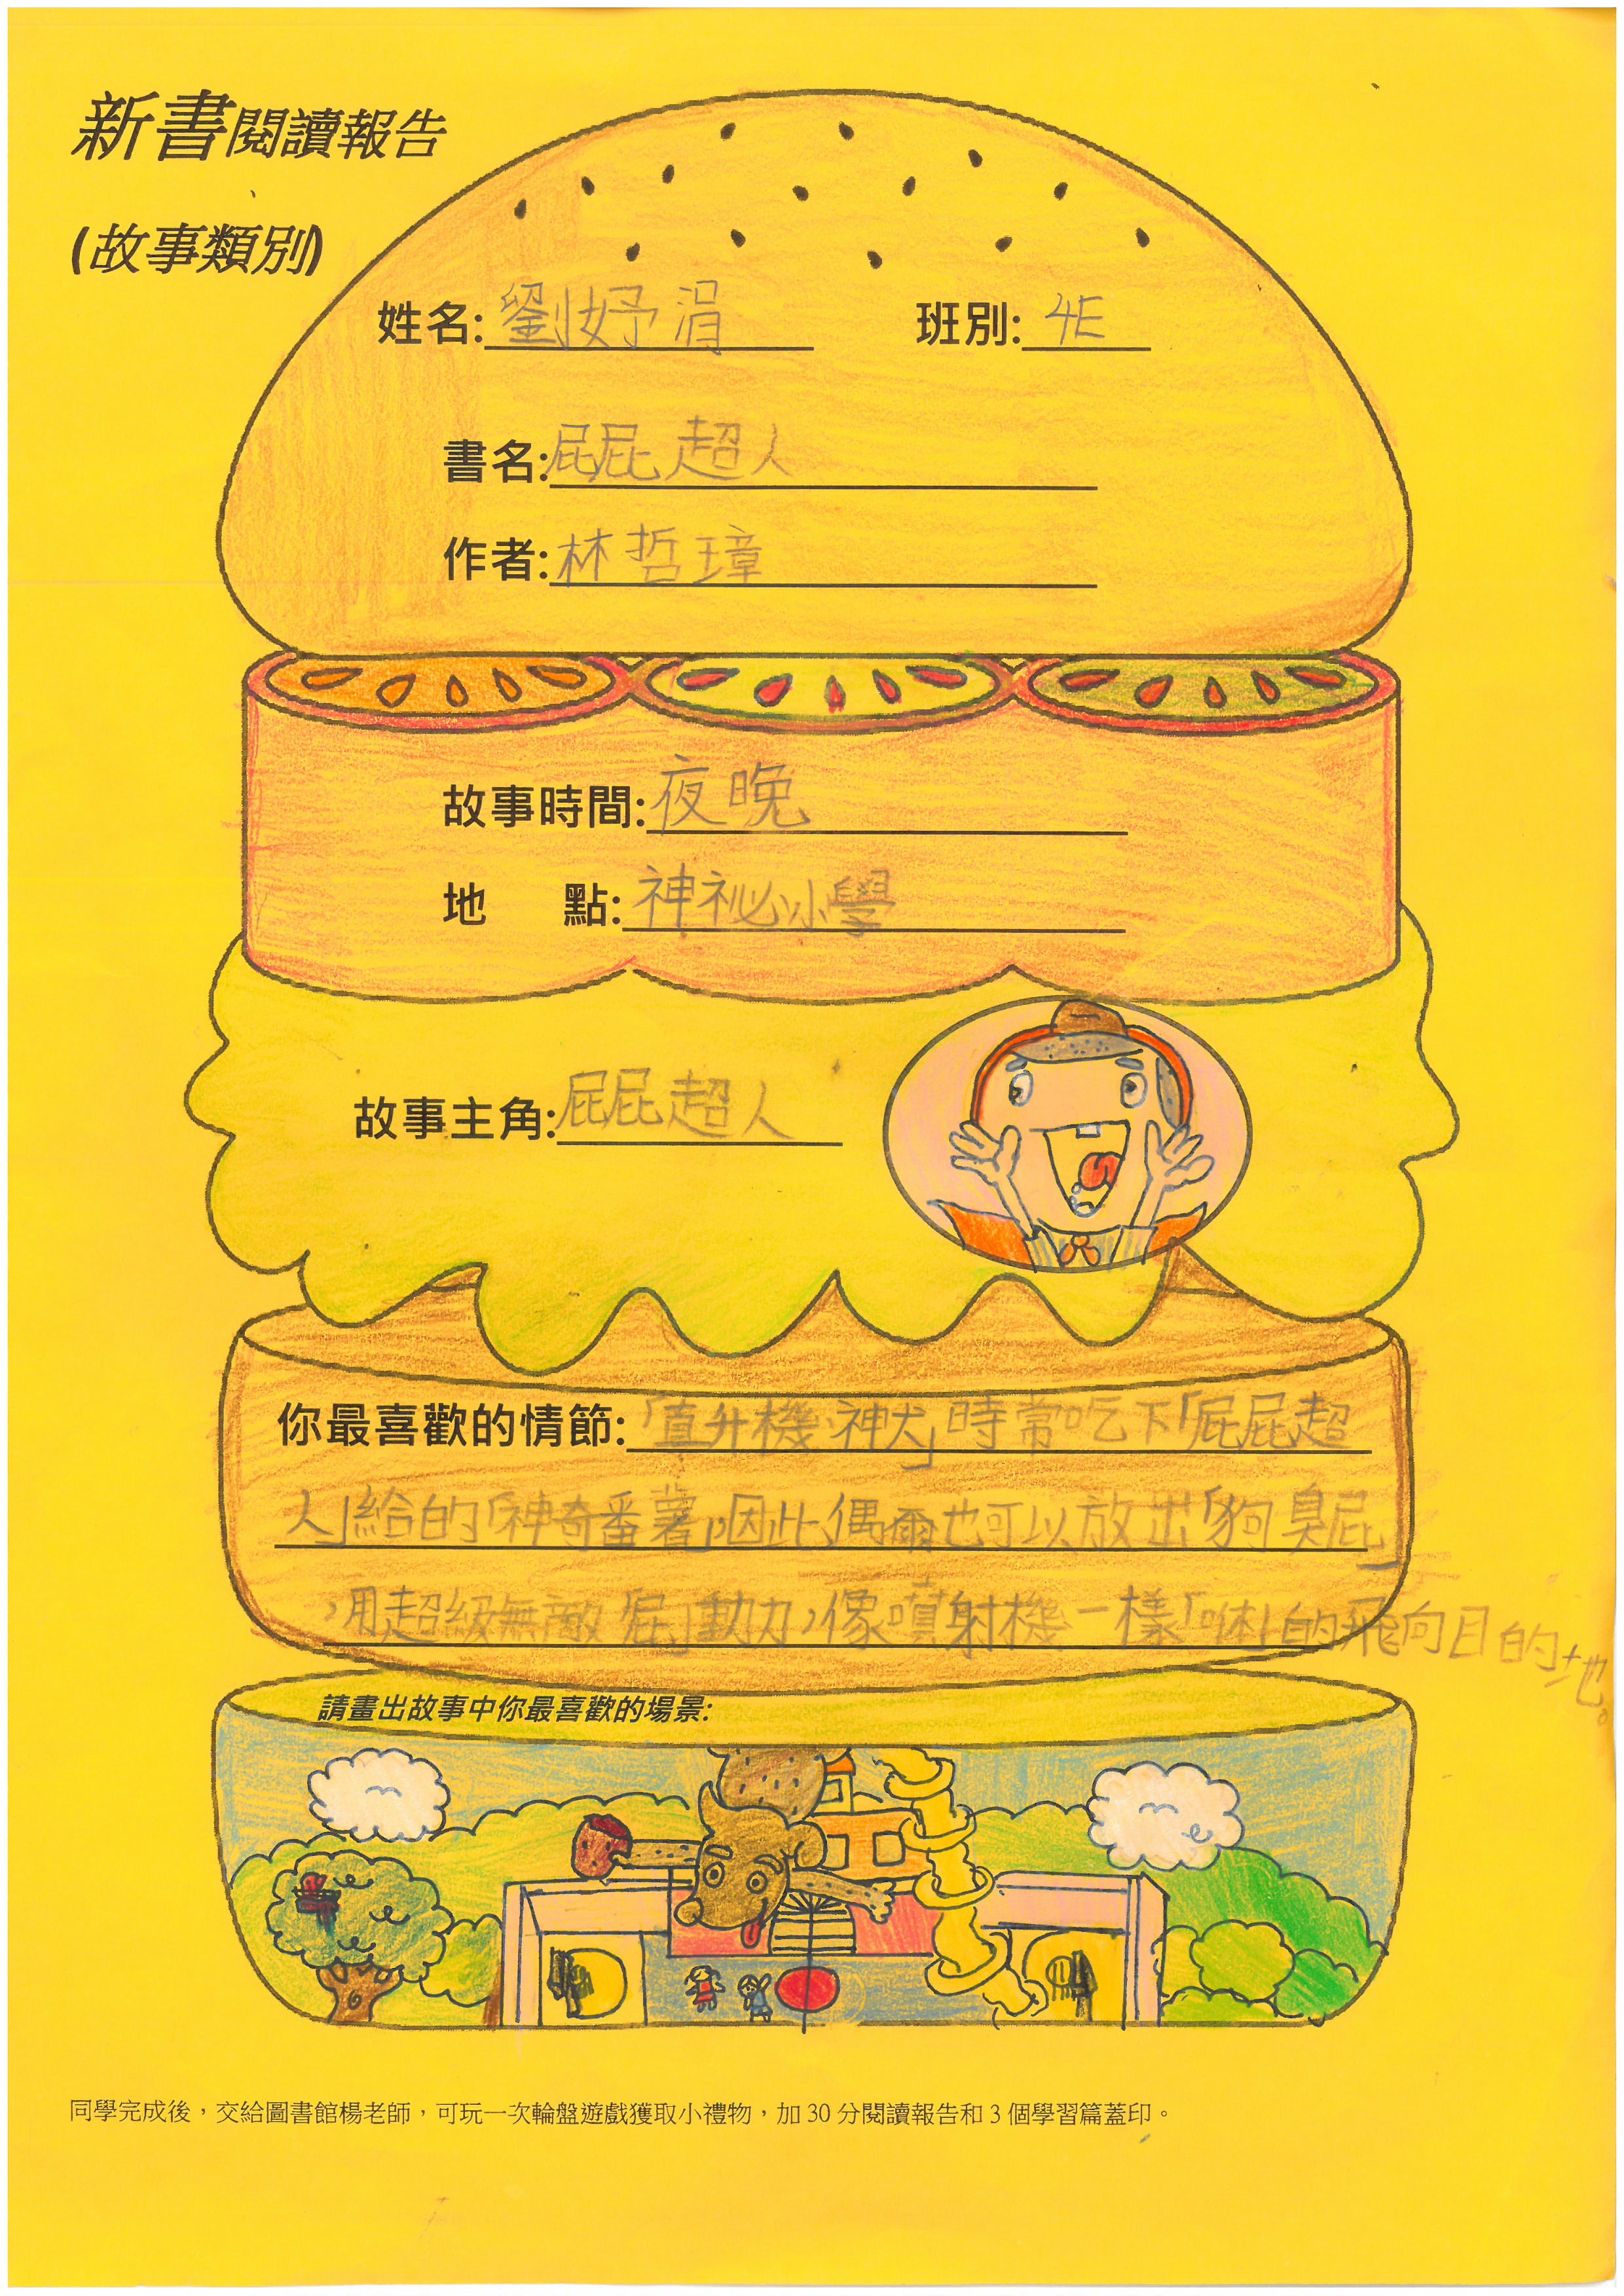 新書閱讀報告
(故事類別)
姓名:劉妤涓 班別:4E
書名:屁屁超人
作者:林哲璋
故事時間:夜晚
地 點:神祕小學
故事主角:屁屁超人
你最喜歡的情節:「直升機神犬」時常吃下「屁屁超
人」給的「神奇番薯」,因此,偶爾也可以放出「狗臭屁」
,用超級無敵「屁」動力,像噴射機一樣「咻」的飛向目的地。
請畫出故事中你最喜歡的場景:
同學完成後，交給圖書館楊老師，可玩一次輪盤遊戲獲取小禮物，加 30 分閱讀報告和 3 個學習篇蓋印。